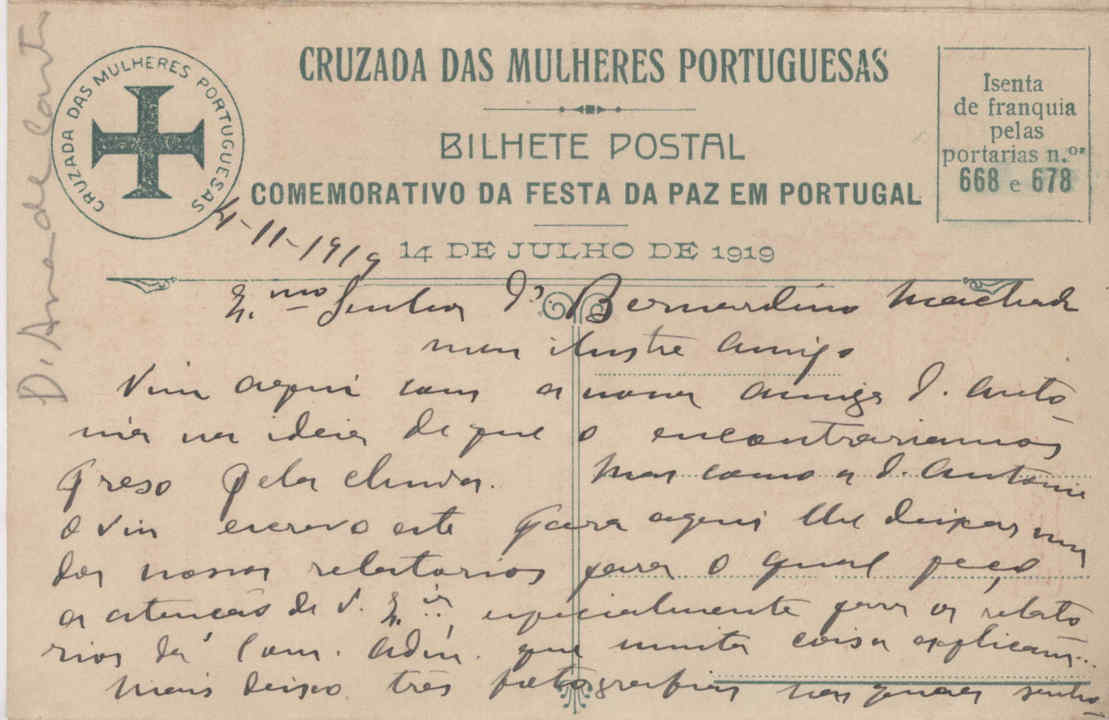 CRUZADA DAS MULHERES PORTUGUESAS
CRUZADA DAS MULHERES PORTUGUESAS
BILHETE POSTAL
COMEMORATIVO DA FESTA DA PAZ EM PORTUGAL
14 DE JULHO DE 1919
Isenta
de franquia
pelas
portarias n.os
668 e 678
D. Ana de
4-11-1919
E.mo Senhor Dr Bernardino Machado
meu ilustre amigo
Vim aqui com a nossa amiga D. Antó-
nia na ideia de que o encontrariamos
preso pela chuva. Mas como a D. Antonia
o viu escrevo este para aqui lhe deixar um
dos nossos relatorios para o qual peço
a atenção de V. E.ia, especialmente para os relato
rios da Com. Adm. que muita coisa explicam...
Mais deixo tres fotografias nas quaes senho-